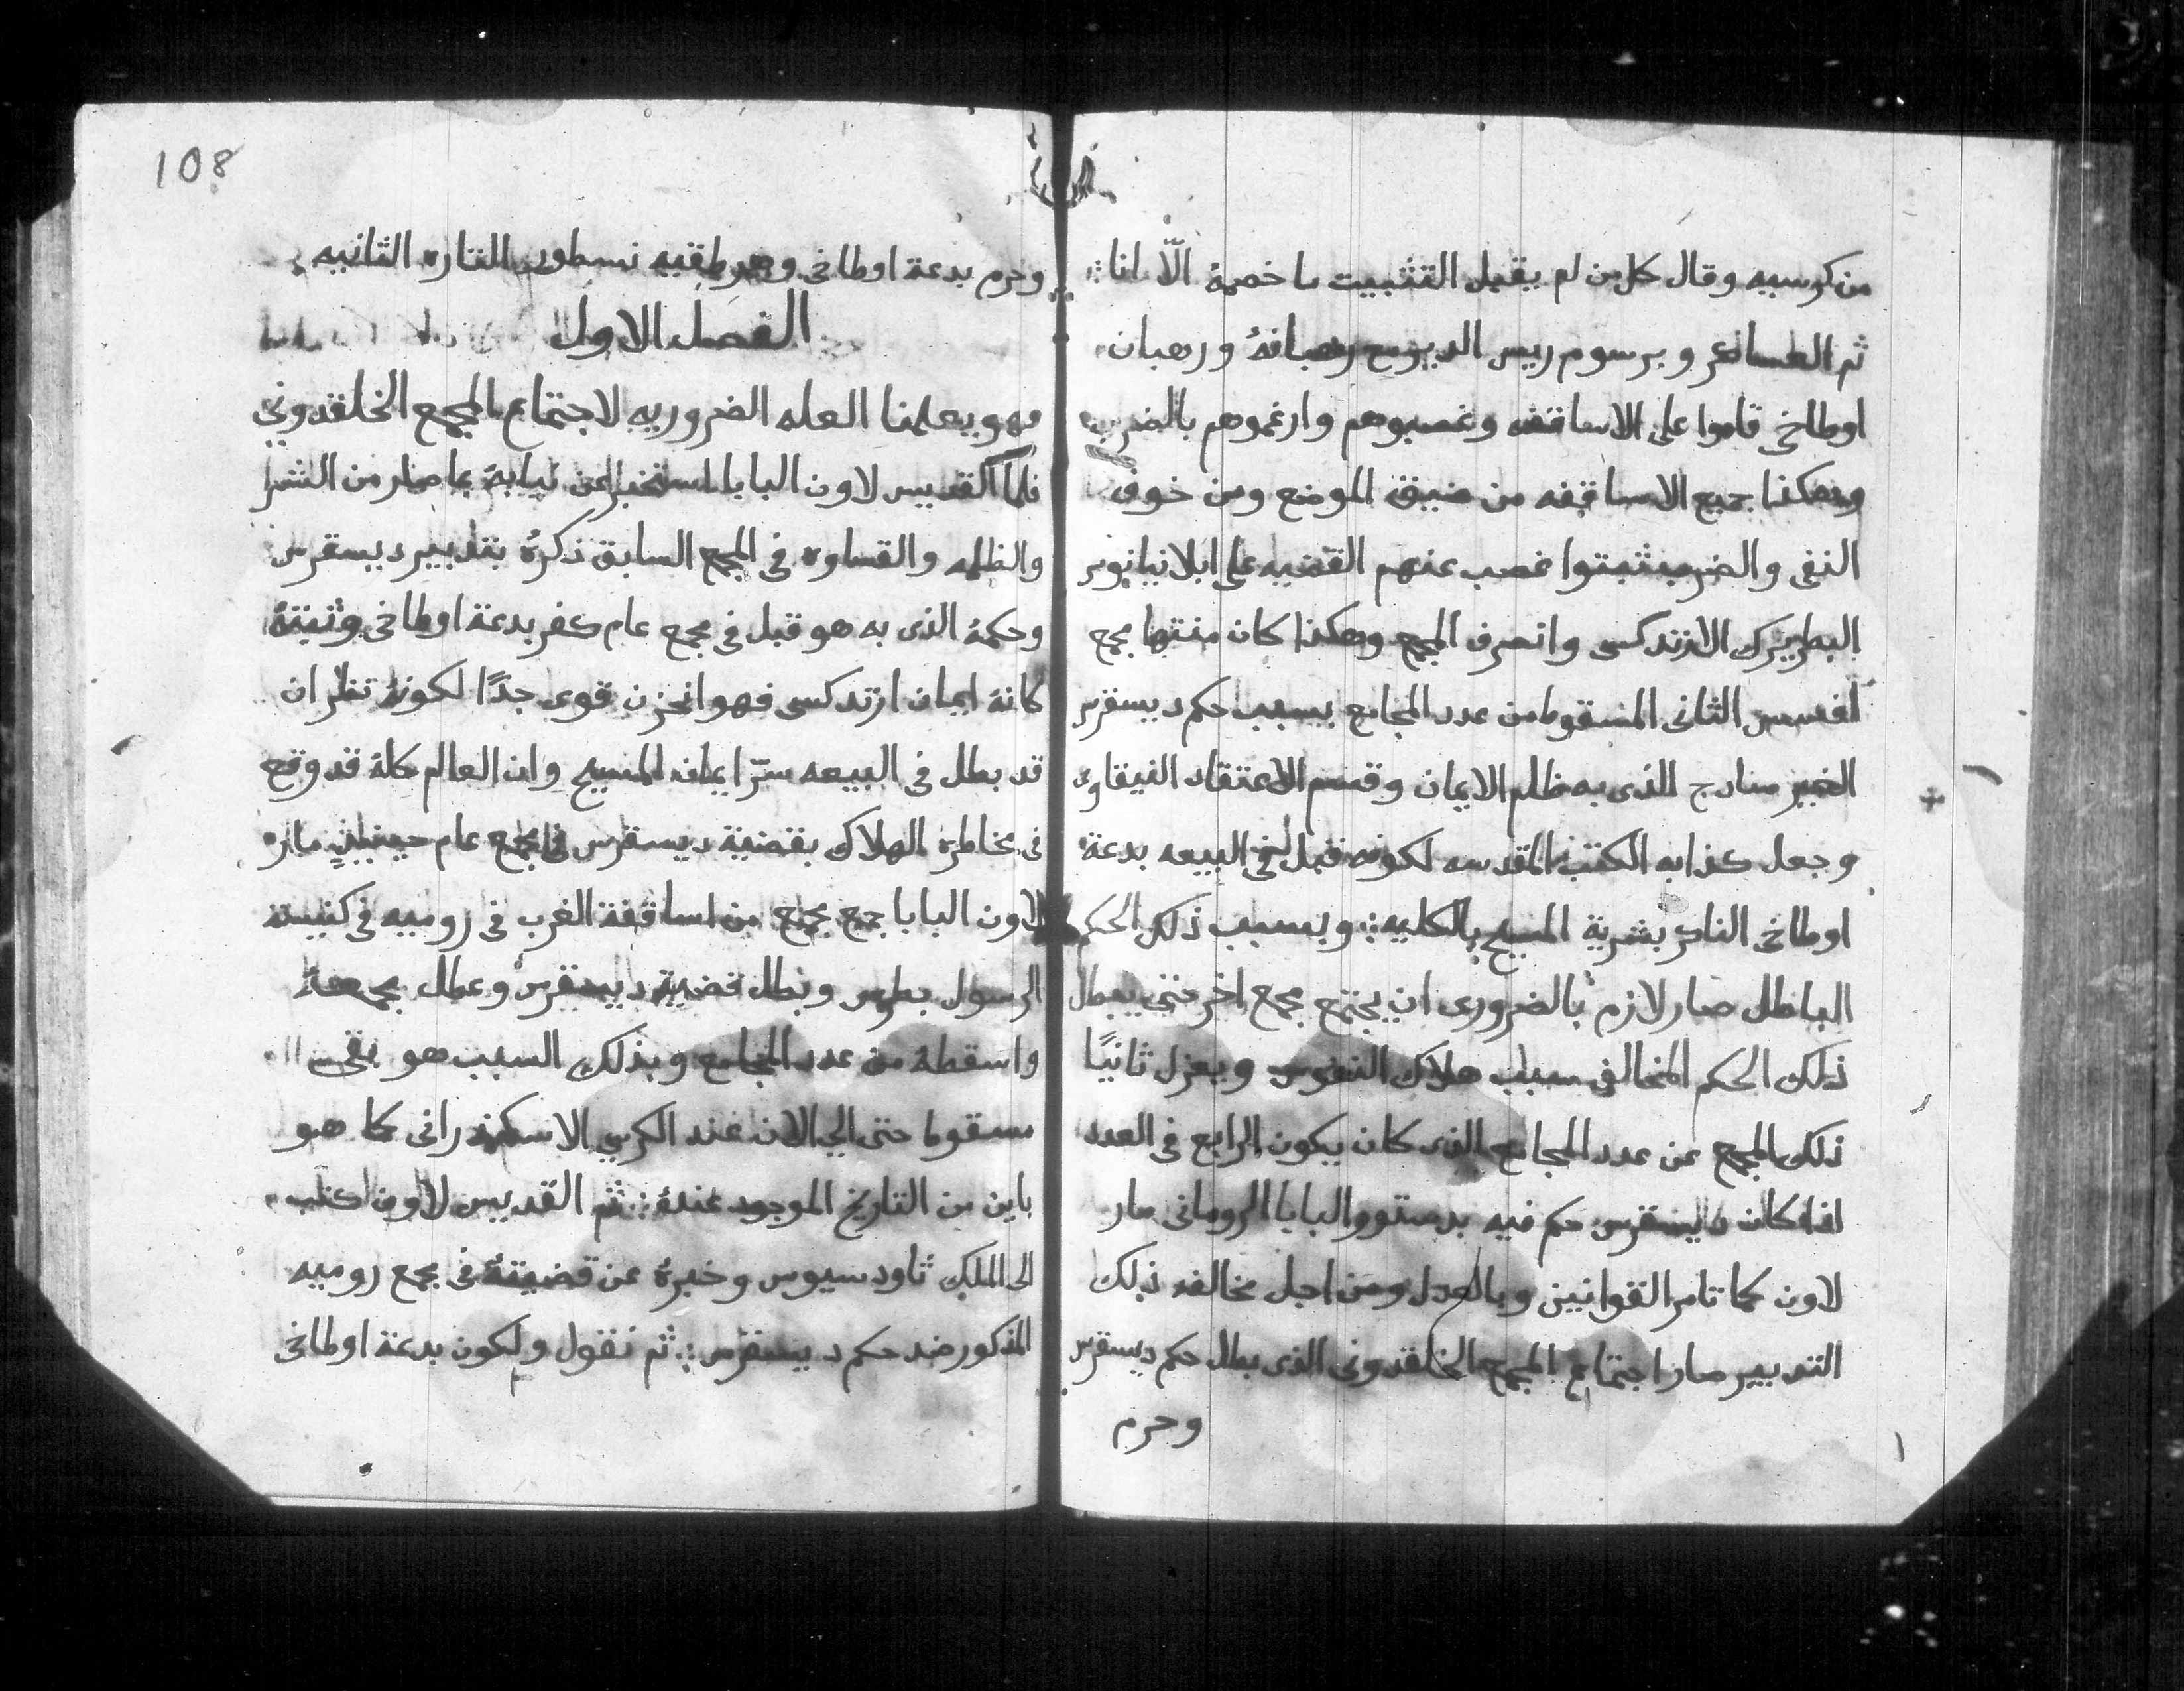 من كرسيه وقال كل من لم يقبل التثبيت ما خصمهُ الّا انا
ثم العساكر وبرسوم ريس الديورع رهبانهُ ورهبان
اوطاخي قاموا على الاساقفه وغصبوهم وارغموهم بالضرب
وهكذا جميع الاساقفه من ضيق الموضع ومن خوف
النفى والضرب ثبتوا غصب عنهم القضيه على ابلانيانوس
البطريرك الارتدكسى وانصرف المجمع وهكذا كان منتها مجمع
افسس الثانى المسقوط من عدد المجامع بسبب حكم ديسقرس
الغير سادج الذى به ظلم الايمان وقسم الاعتقاد النيقاوى
وجعل كذابه الكتب المقدسه لكونه قبل في البيعه بدعة
اوطاخى الناكر بشرية المسيح بالكليه : وبسبب ذلك الحكم
الباطل صار لازم بالضرورى ان يجتمع مجمع اخر حتى يبطل
ذلك الحكم المخالف سبب هلاك النفوس ويعزل ثانيًا
ذلك المجمع عن عدد المجامع الذى كان يكون الرابع فى العدد
اذا كان ديسقرس حكم فيه بدستور البابا الرومانى مار
لاون كما تامر القوانين وبالعدل ومن اجل مخالفه ذلك
التدبير صار اجتماع المجمع الخلقدونى الذى بطل حكم ديسقرس
وحرم
108
وحرم بدعة اوطاخى وهرطقيه نسطور التاره الثانيه
الفصل الاول
فهو يعلمنا العله الضروريه لاجتماع المجمع الخلقدوني
فلما القديس لاون البابا استخبر عن نيابهُ بما صار من الشر
والظلمه والقساوه في المجمع السابق ذكرهُ بتدبير ديسقرس
وحكمهُ الذى به هو قبل في مجمع عام كفر بدعة اوطاخى وثبتهُ
كانهُ ايمان ارتدكسى فهو انحزن قوى جدًا لكونهُ نظر ان
قد بطل فى البيعه سرّ ايمان المسيح وان العالم كلهُ قد وقع
فى مخاطرة الهلاك بقضية ديسقرس في مجمع عام حينيذٍ مار
لاون البابا جمع مجمع من اساقفة الغرب في روميه في كنيسة
الرسول بطرس وبطل قضية ديسقرس وعطل مجمعهُ
واسقطهُ من عدد المجامع وبذلك السبب هو بقى
مسقوط حتى الي الان عند الكرسي الاسكندرانى كما هو
باين من التاريخ الموجود عندهُ : ثم القديس لاون كتب
الى الملك تاودسيوس وخبرهُ عن قضيتهُ فى مجمع روميه
المذكور ضد حكم ديسقرس : ثم نقول ولكون بدعة اوطاخى